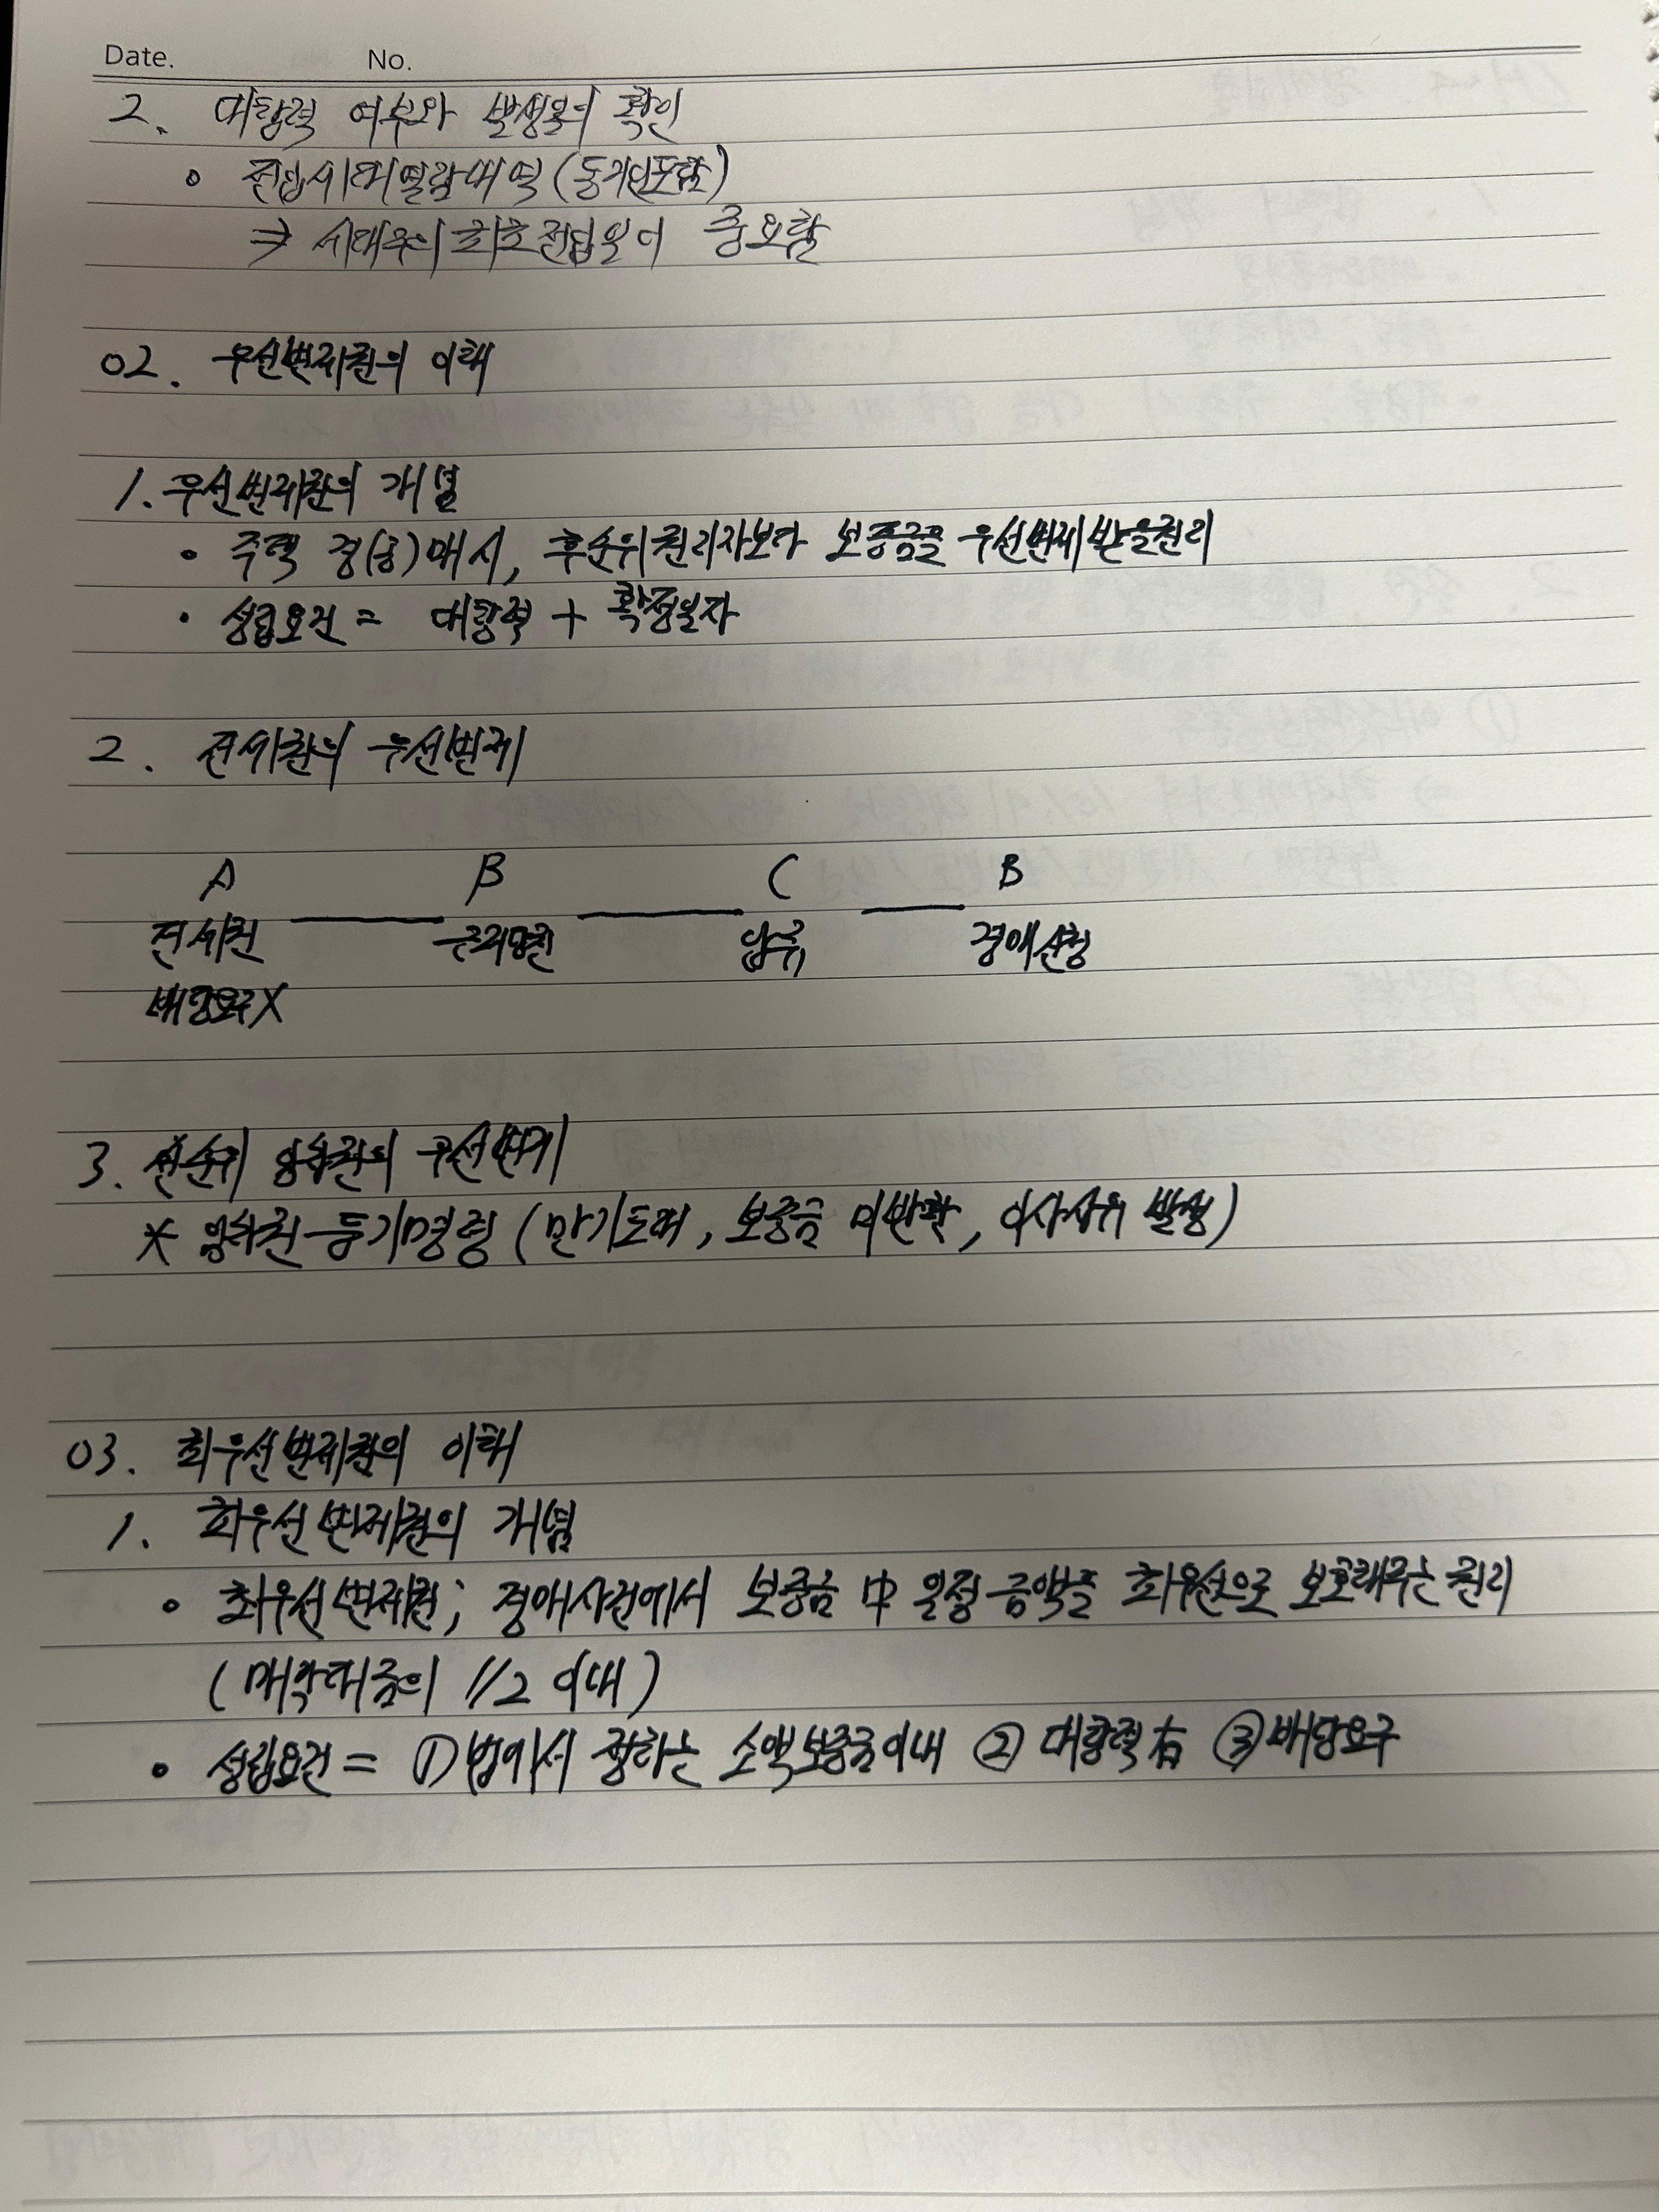 Date. No.
2. 대항력 여부와 발생일의 확인
• 전입세대열람내역 (동거인포함)
⇒ 세대주의 최초전입일이 중요함
02. 우선변제권의 이해
1. 우선변제권의 개념
• 주택 경(공)매시, 후순위권리자보다 보증금을 우선변제 받을권리
• 성립요건 = 대항력 + 확정일자
2. 전세권의 우선변제
A B C B
전세권 근저당권 압류 경매신청
배당요구X
3. 선순위 임차권의 우선변제
* 임차권등기명령 (만기도래, 보증금 미반환, 이사사유 발생)
03. 최우선변제권의 이해
1. 최우선변제권의 개념
• 최우선변제권; 경매사건에서 보증금 中 일정금액을 최우선으로 보호해주는 권리
(매각대금의 1/2 이내)
• 성립요건 = ① 법에서 정하는 소액보증금이내 ② 대항력 有 ③ 배당요구